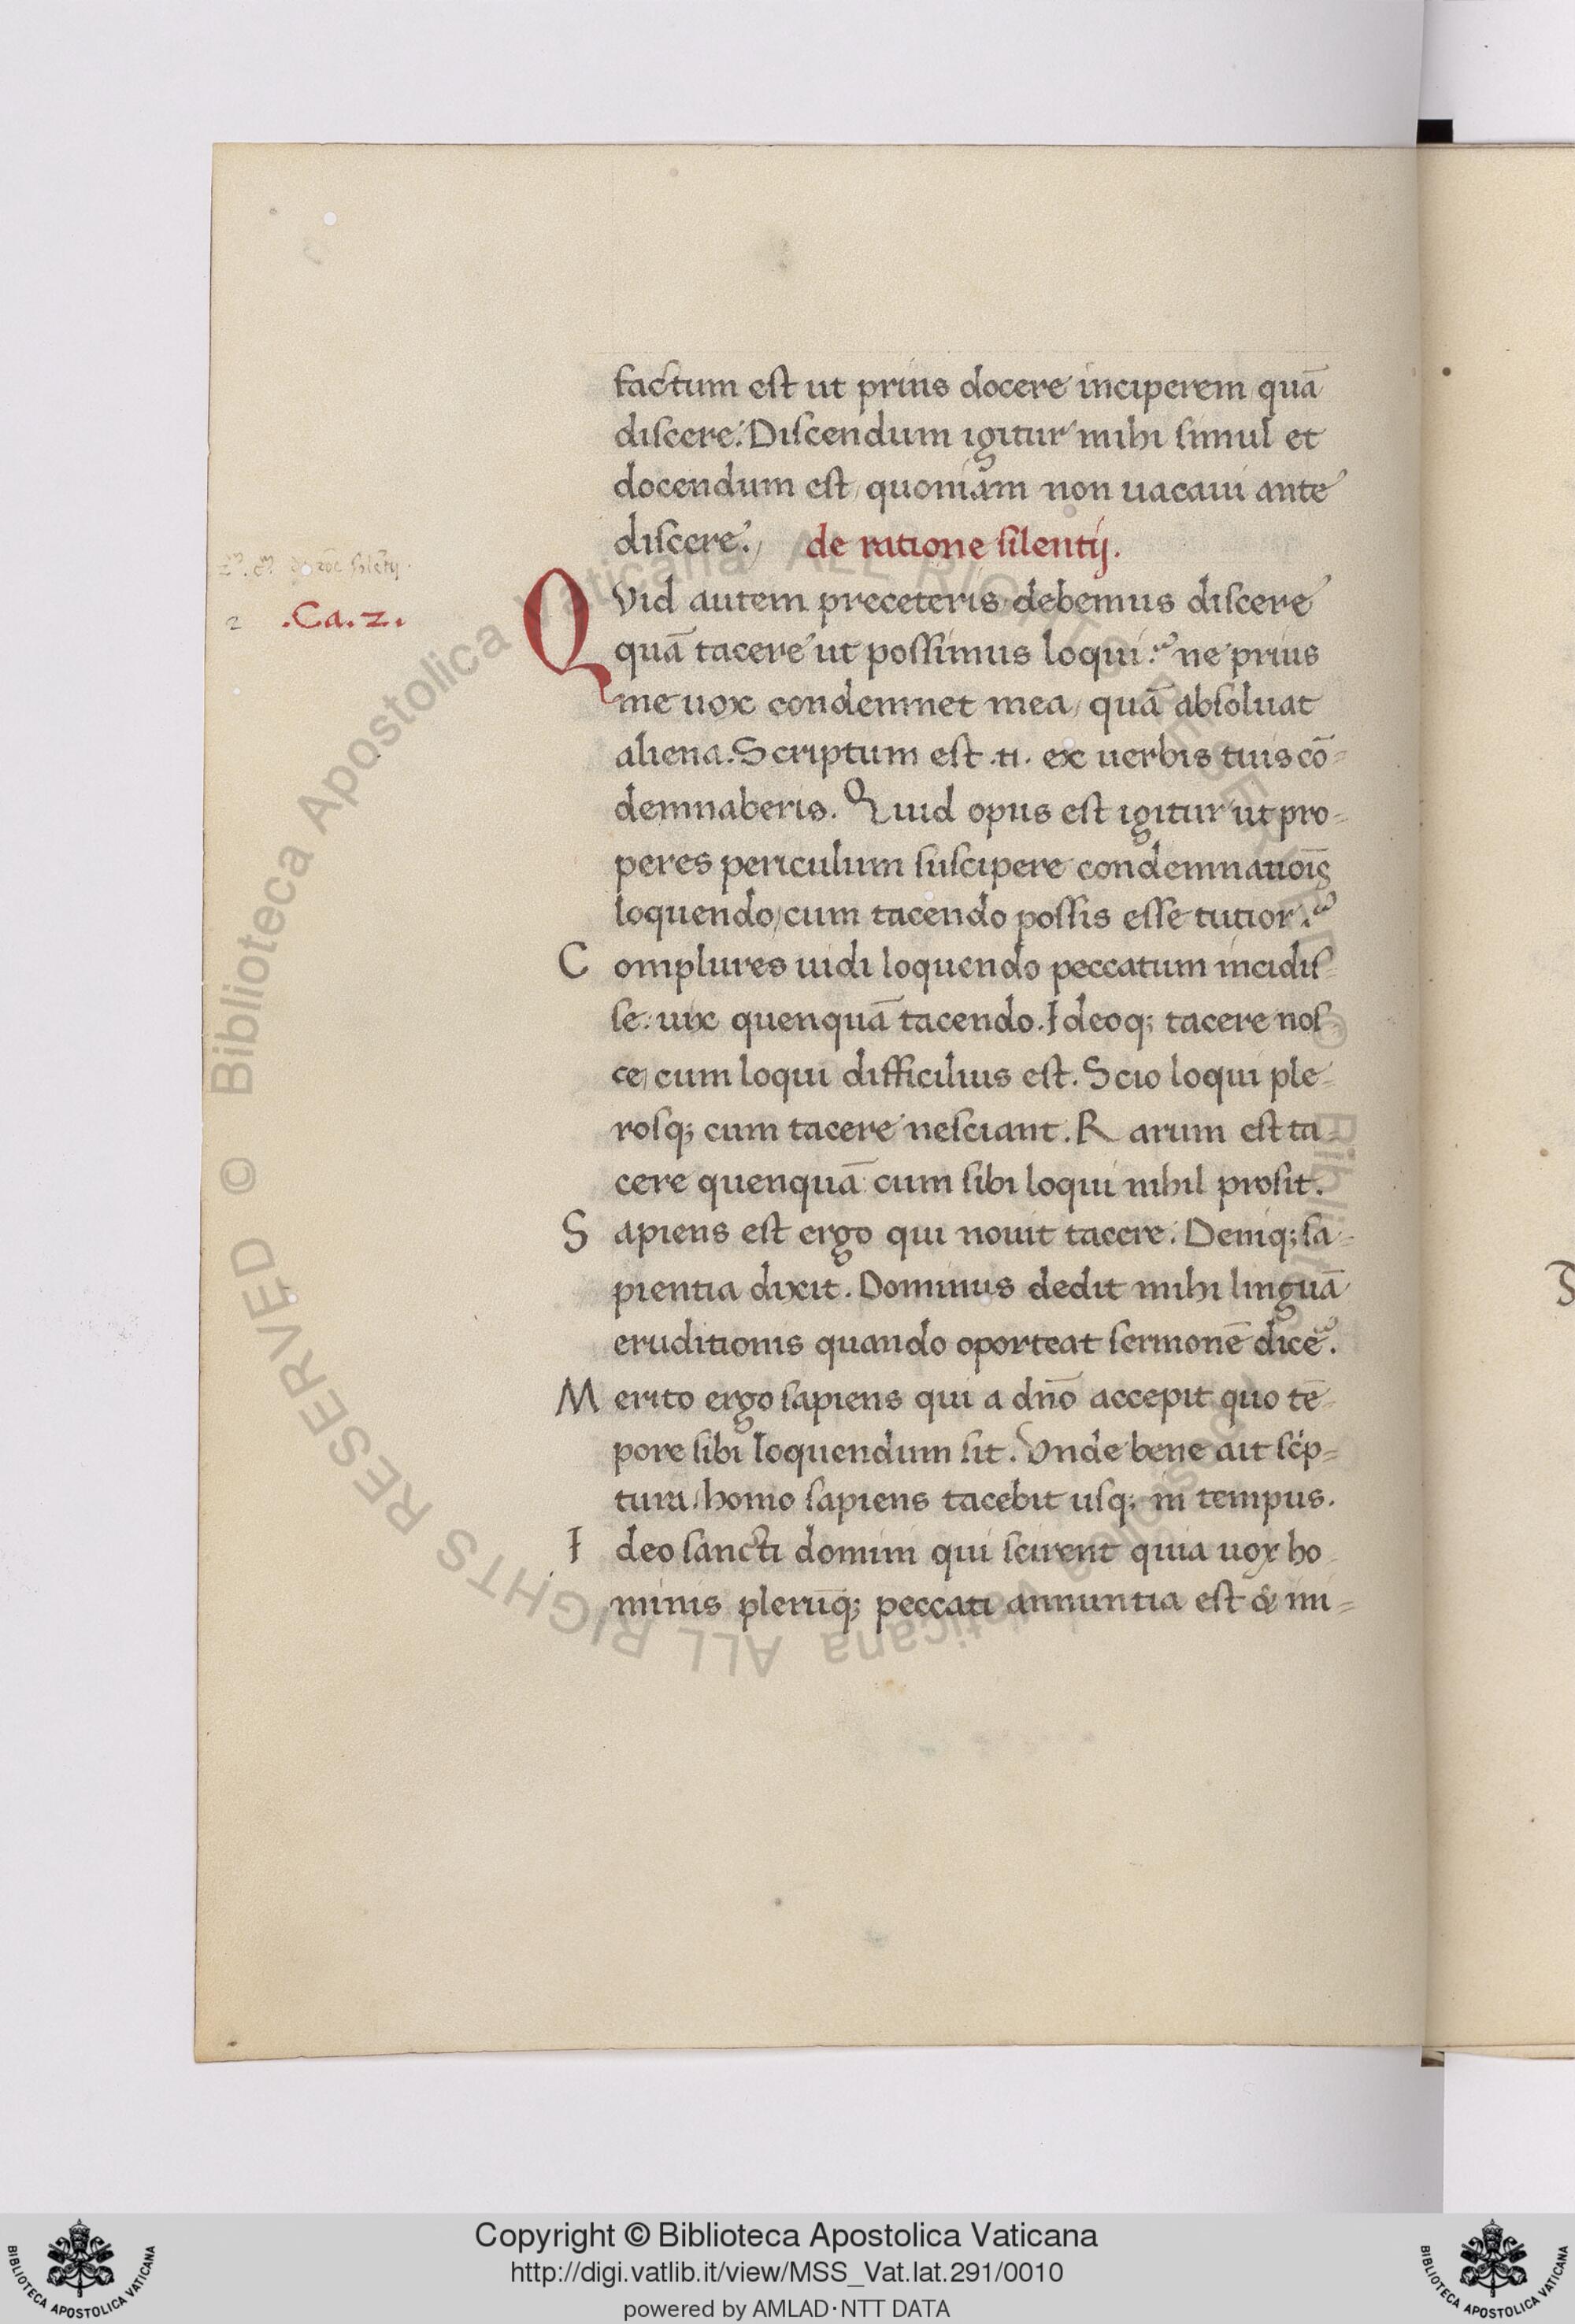 factum est ut prius docere inciperem quā
discere. Discendum igitur mihi simul et
docendum est, quoniam non uacaui ante
discere. de ratione silentij.
.Ca.2.
2
QVid autem preceteris debemus discere
quā tacere ut possimus loqui? ne prius
me uox condemnet mea, quā absoluat
aliena. Scriptum est .n. ex uerbis tuis cō-
demnaberis. Quid opus est igitur ut pro-
peres periculum suscipere condemnatiōis
loquendo, cum tacendo possis esse tutior?
Complures uidi loquendo peccatum incidis-
se: uix quenquā tacendo. Ideoq; tacere nos-
ce, cum loqui difficilius est. Scio loqui ple-
rosq; cum tacere nesciant. Rarum est ta-
cere quenquā: cum sibi loqui nihil prosit.
Sapiens est ergo qui nouit tacere. Deniq; sa-
pientia dixit. Dominus dedit mihi linguā
eruditionis quando oporteat sermonē dicē.
Merito ergo sapiens qui a dn̄o accepit quo tē-
pore sibi loquendum sit. Vnde bene ait sc̄p-
tura, homo sapiens tacebit usq; in tempus.
Ideo sancti domini qui scirent quia uox ho-
minis plerūq; peccati annuntia est & ini-
© Biblioteca Apostolica Vaticana ALL RIGHTS RESERVED © Biblioteca Apostolica Vaticana ALL RIGHTS RESERVED
Copyright © Biblioteca Apostolica Vaticana
http://digi.vatlib.it/view/MSS_Vat.lat.291/0010
powered by AMLAD·NTT DATA
BIBLIOTECA APOSTOLICA VATICANA
BIBLIOTECA APOSTOLICA VATICANA